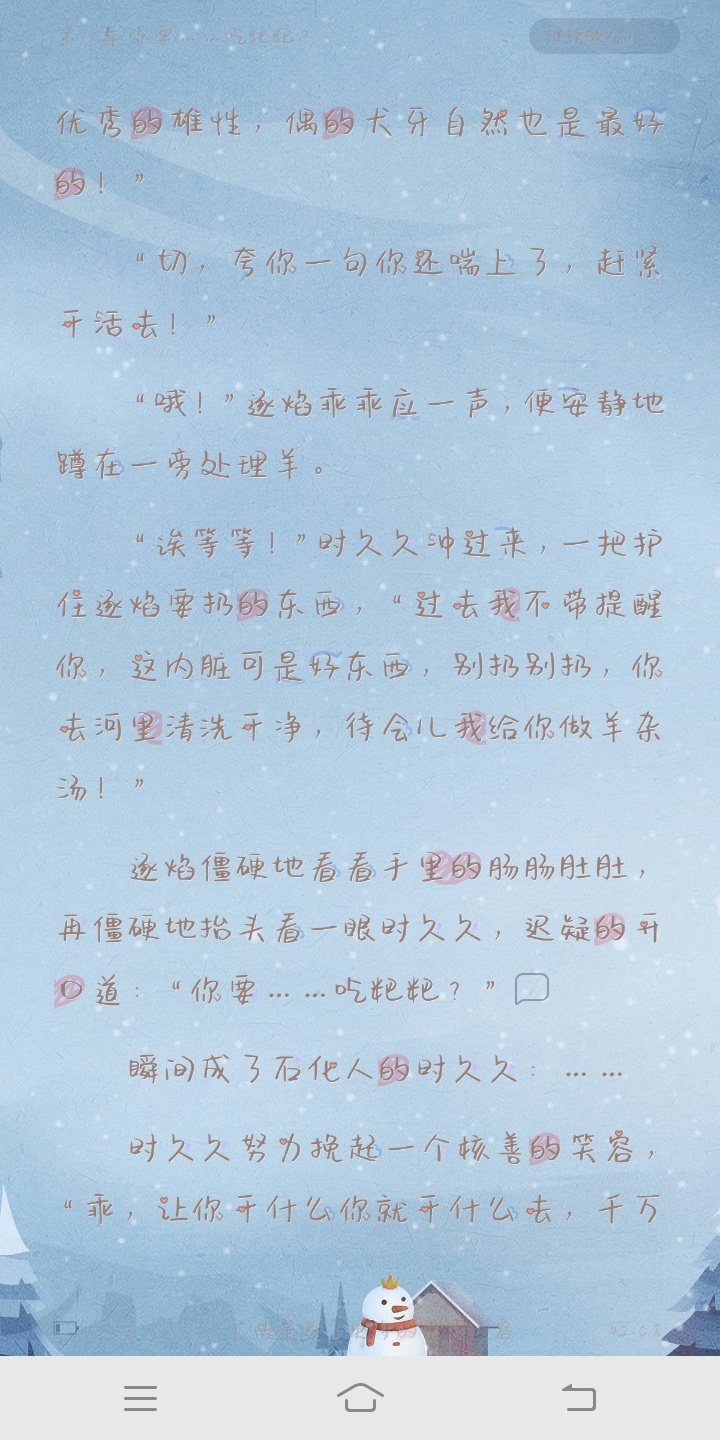 优秀的雄性，偶的犬牙自然也是最好
的！”
“切，夸你一句你还喘上了，赶紧
干活去！”
“哦！”逐焰乖乖应一声，便安静地
蹲在一旁处理羊。
“诶等等！”时久久冲过来，一把护
住逐焰要扔的东西，“过去我不带提醒
你，这内脏可是好东西，别扔别扔，你
去河里清洗干净，待会儿我给你做羊杂
汤！”
逐焰僵硬地看看手里的肠肠肚肚，
再僵硬地抬头看一眼时久久，迟疑的开
口道：“你要……吃粑粑？”
瞬间成了石化人的时久久：……
时久久努力挽起一个核善的笑容，
“乖，让你干什么你就干什么去，千万